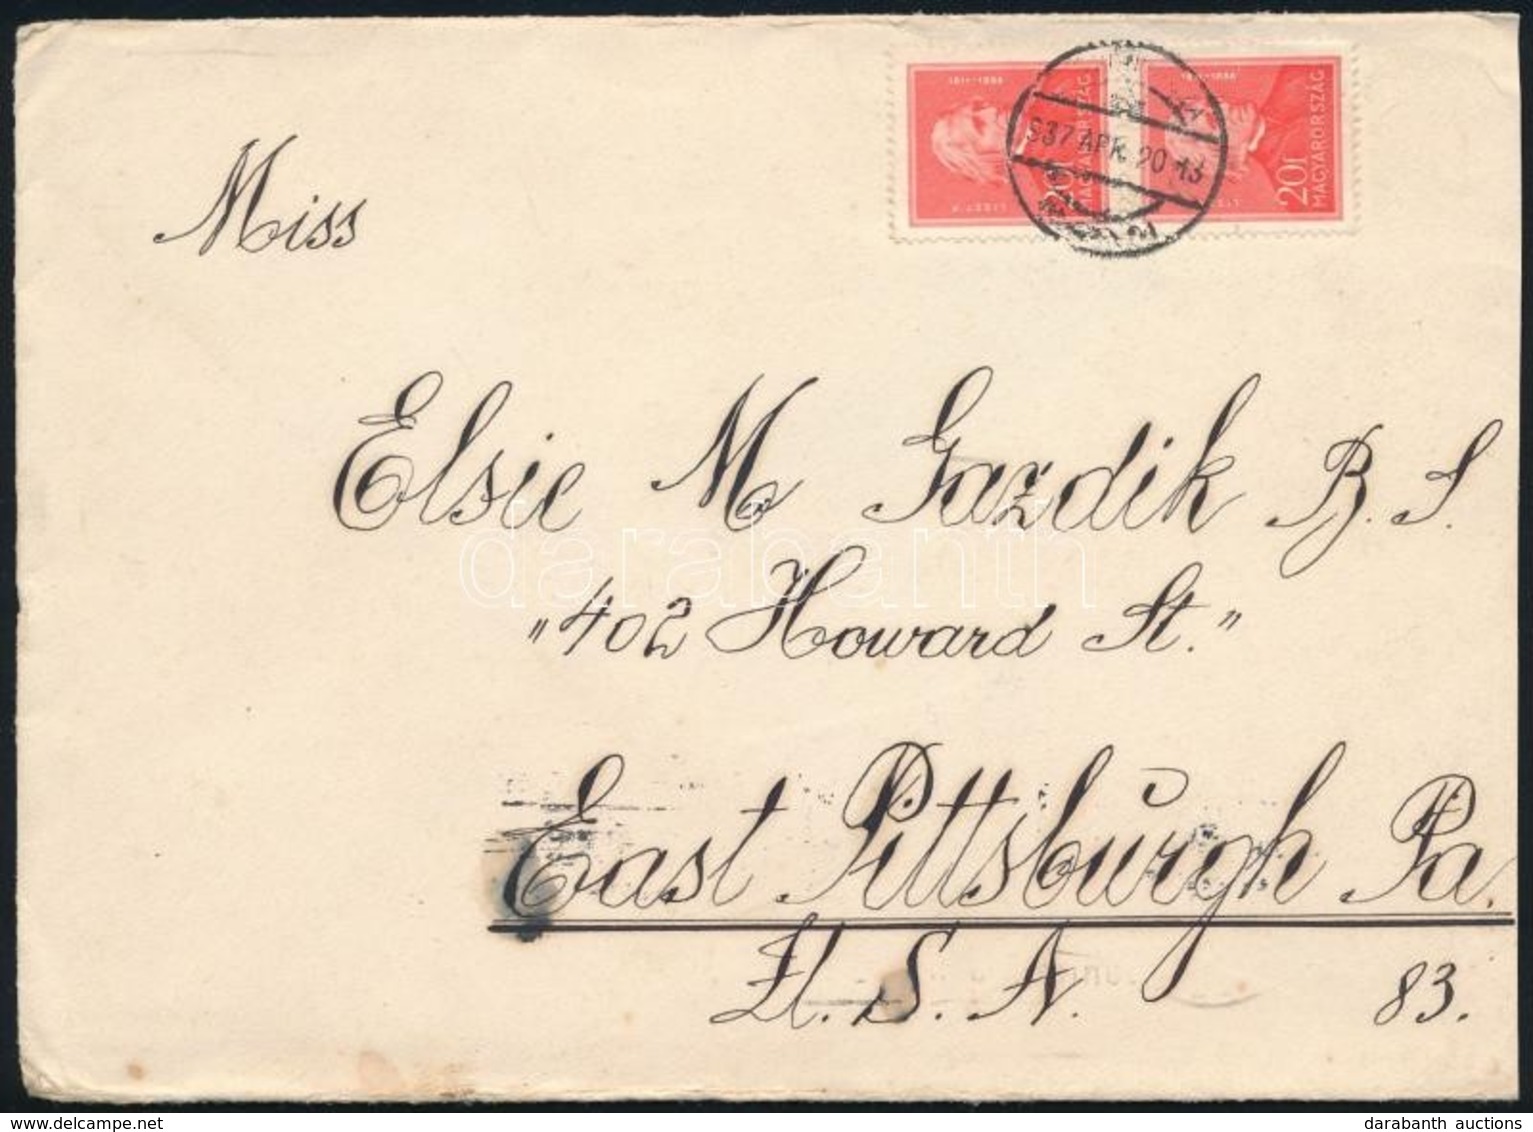 1811-1886
20f
MAGYARORSZÁG
LISZT F.
1811-1886
20f
MAGYARORSZÁG
937 APR. 20 -13
Miss
Elsie M Gazdik B. S.
"402 Howard St."
East Pittsburgh Pa.
U. S. A. 83.
darabanth
delcampe.net
darabanth auctions